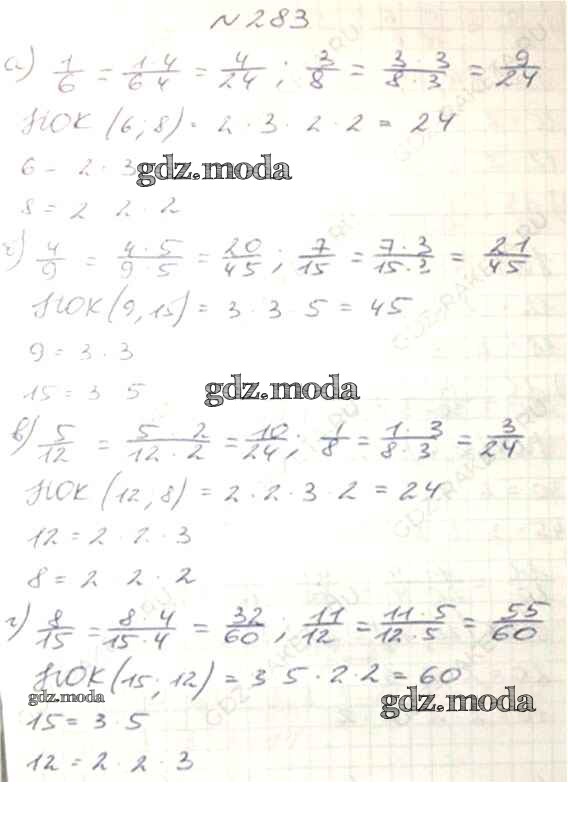 № 283
а) 1/6 = 1·4/6 4 = 4/24 ; 3/8 = 3·3/8·3 = 9/24
НОК (6; 8) = 2 · 3 · 2 · 2 = 24
6 = 2 · 3 gdz.moda
8 = 2 2 · 2
б) 4/9 = 4·5/9·5 = 20/45 ; 7/15 = 7·3/15·3 = 21/45
НОК (9, 15) = 3 · 3 · 5 = 45
9 = 3 · 3
15 = 3 5 gdz.moda
в) 5/12 = 5·2/12·2 = 10/24 ; 1/8 = 1·3/8·3 = 3/24
НОК (12, 8) = 2 · 2 · 3 · 2 = 24
12 = 2 · 2 · 3
8 = 2 2 · 2
г) 8/15 = 8·4/15·4 = 32/60 ; 11/12 = 11·5/12·5 = 55/60
НОК (15, 12) = 3 5 · 2 · 2 = 60
gdz.moda gdz.moda
15 = 3 · 5
12 = 2 · 2 · 3